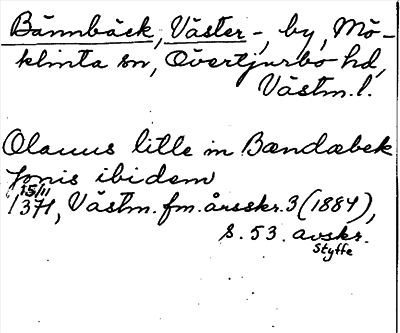 Bännbäck, Väster-, by, Mö-
klinta sn, Övertjurbo hd,
Västm.l.
Olauus lille in Bændæbek
Jonis ibidem
15/11
1371, Västm. fm. årsskr. 3 (1884),
s. 53. avskr.
Styffe